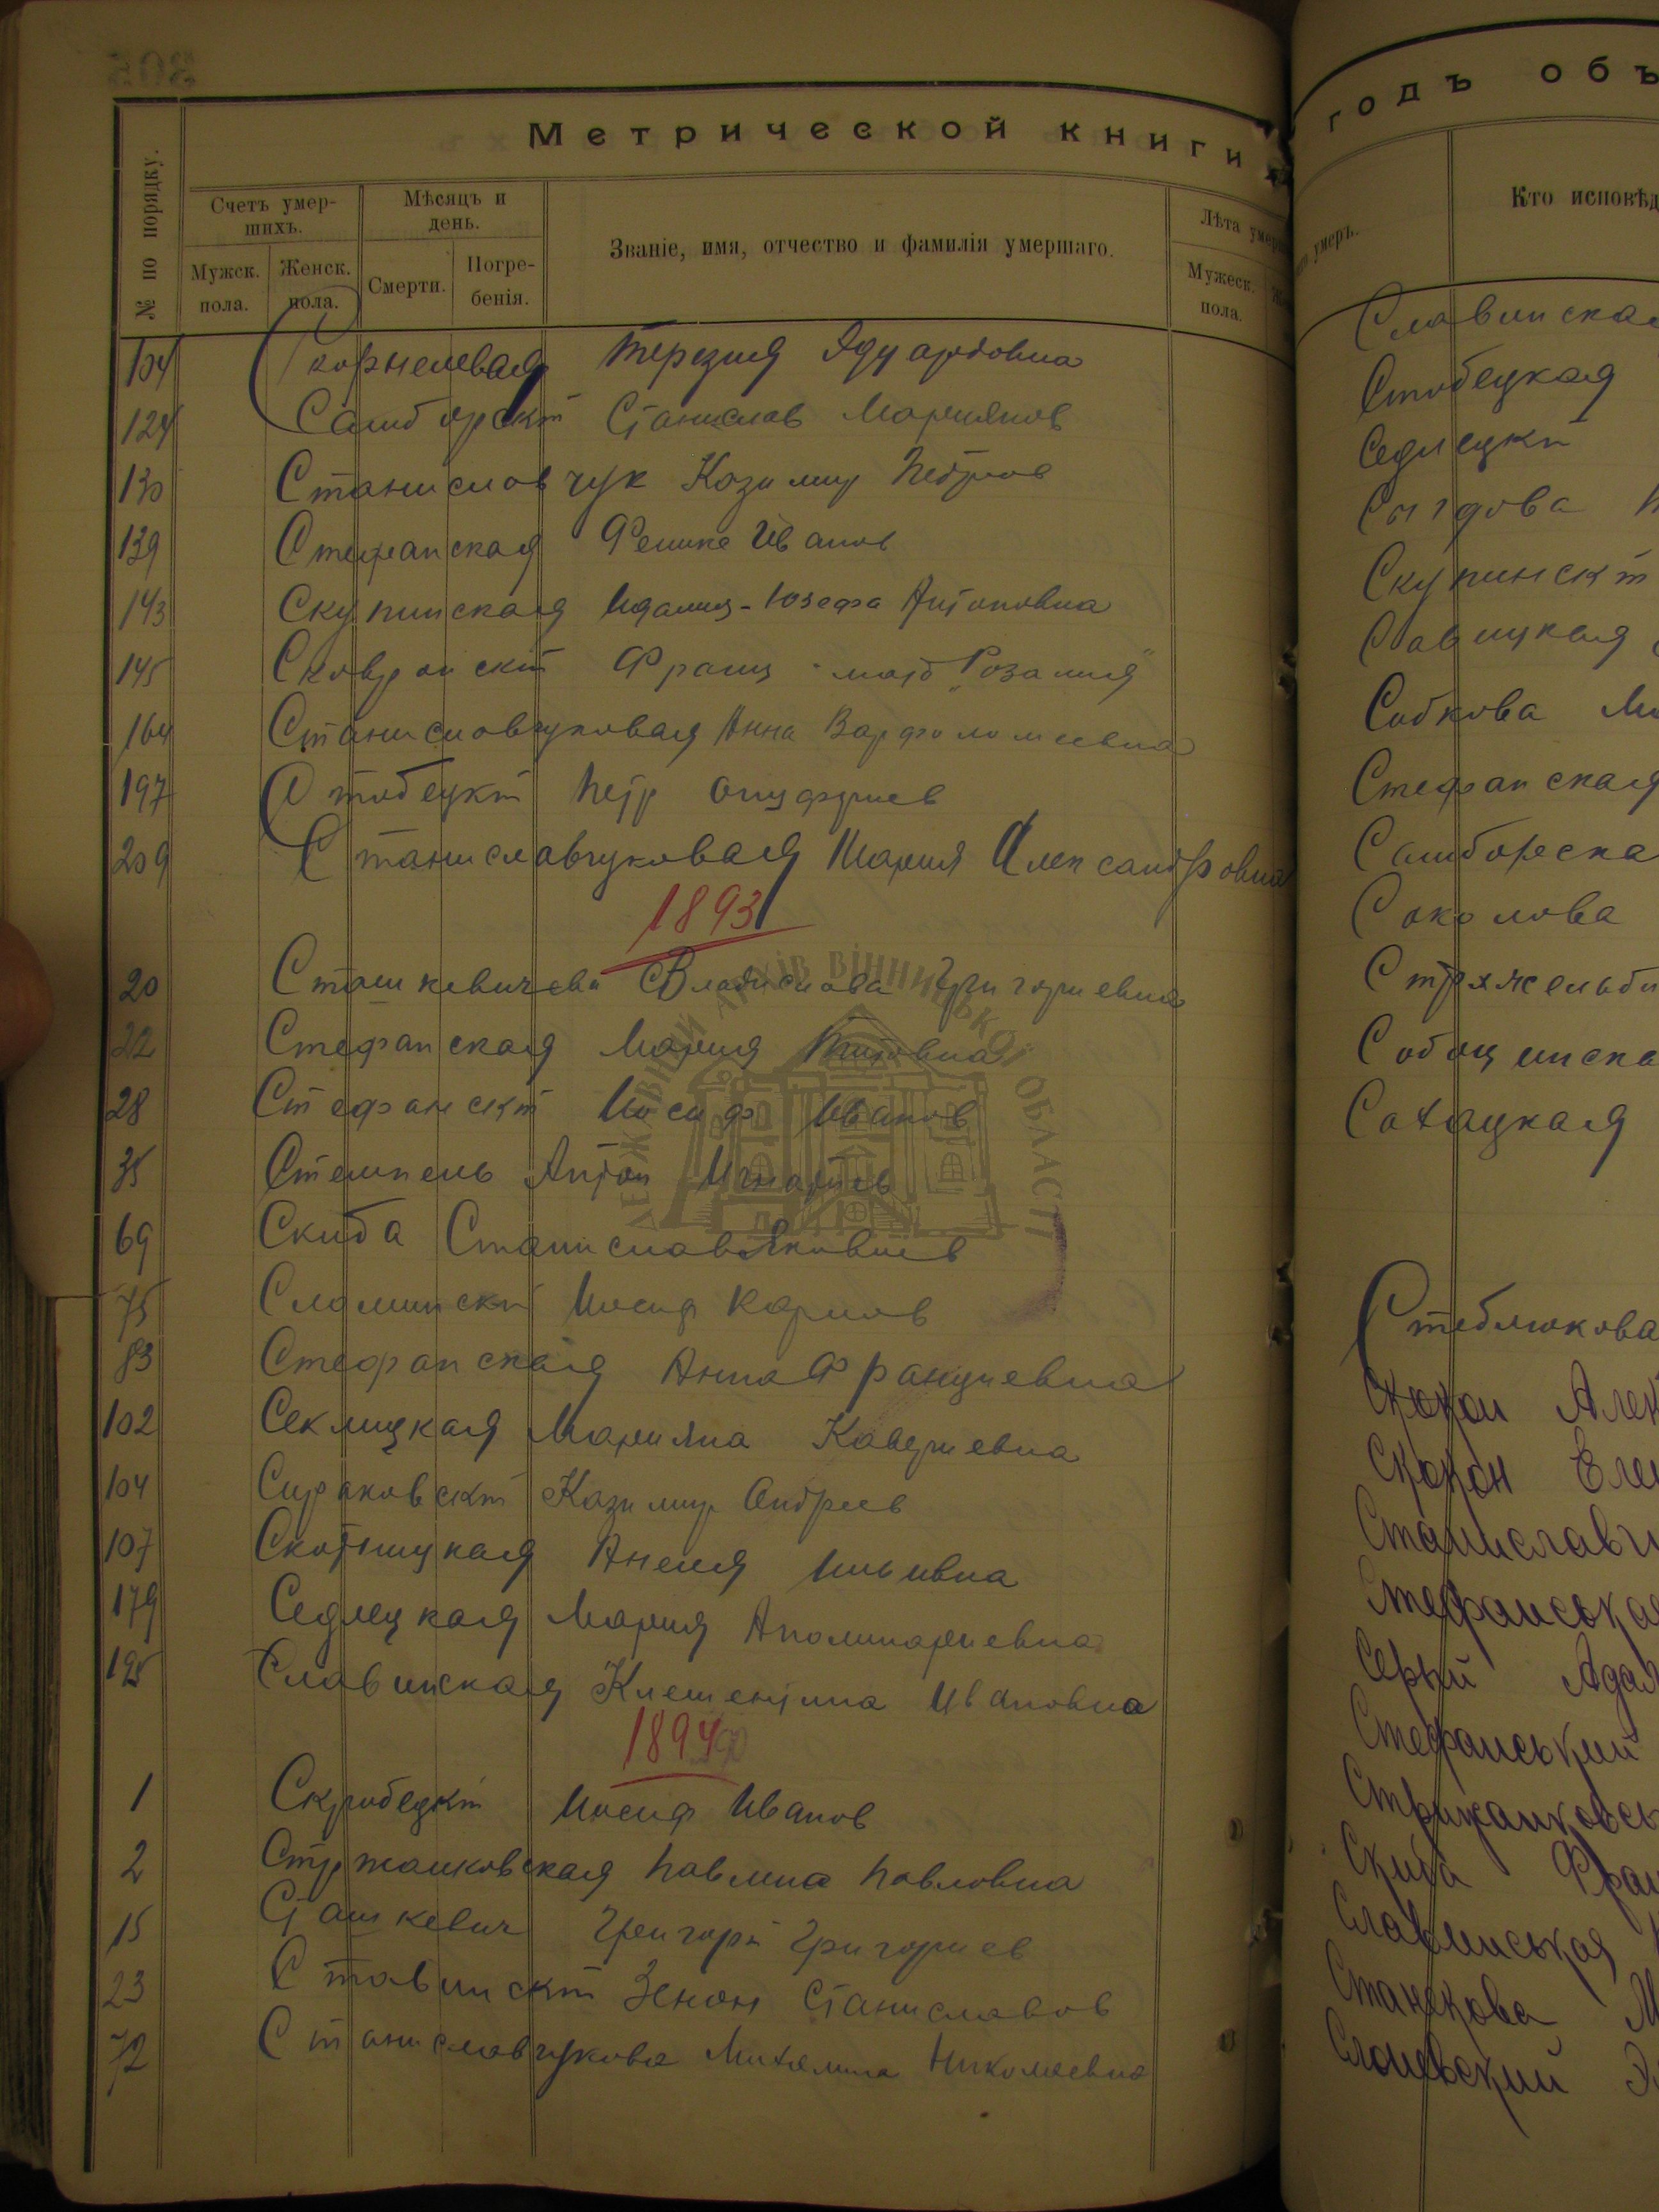 305
Метрической книги
№ по порядку.
Счетъ умер-
шихъ.
Мужск.
пола.
Женск.
пола.
Мѣсяцъ и
день.
Смерти.
Погре-
бенія.
Званіе, имя, отчество и фамилія умершаго.
Лѣта умерш
Мужеск.
пола.
104 Скорнелевая Терезия Эдуардовна
124 Самборскій Станислав Мариянов
130 Станиславчук Казимир Петров
139 Стефанская Феликс Иванов
143 Скупинская Идалия-Юзефа Антоновна
145 Сковронскій Франц мать "Розалия"
164 Станиславчуковая Анна Варфоломеевна
197 Стобецкій Петр Онуфриев
209 Станиславчуковая Мария Александровна
1893
20 Сташкевичева Владислава Григориевна
22 Стефанская Мария Титовна
28 Стефанскій Иосиф Иванов
35 Стемпель Антон Игнатьев
69 Скиба Станислав Яковлев
75 Сломинскй Иосиф Карлов
83 Стефанская Анна Францишевна
102 Секлицкая Марияна Каверневна
104 Сираковскій Казимир Андреев
107 Скотницкая Анеля Ильивна
179 Седлецкая Мария Аполинариевна
195 Славинская Клементина Ивановна
1894
1 Скробецкій Иосиф Иванов
2 Стржалковская Павлина Павловна
15 Сташкевич Григорй Григориев
23 Ставинскій Зенон Станиславов
72 Станиславчукова Михалина Николаевна
ДЕРЖАВНИЙ АРХІВ ВІННИЦЬКОЇ ОБЛАСТІ
годъ объ
умеръ.
Кто исповѣд
Славинская
Стобецкая
Седлецкй
Сыгдова
Скупинскій
Савицкая
Собкова
Стефанская
Самборска
Соколова
Собощинска
Сахацкая
Стеблюкова
Скокон Алек
Скокон Елен
Станиславч
Стефанськая
Серый Адал
Стефанський
Стржалковсь
Скиба Фран
Славинськая
Станекова М